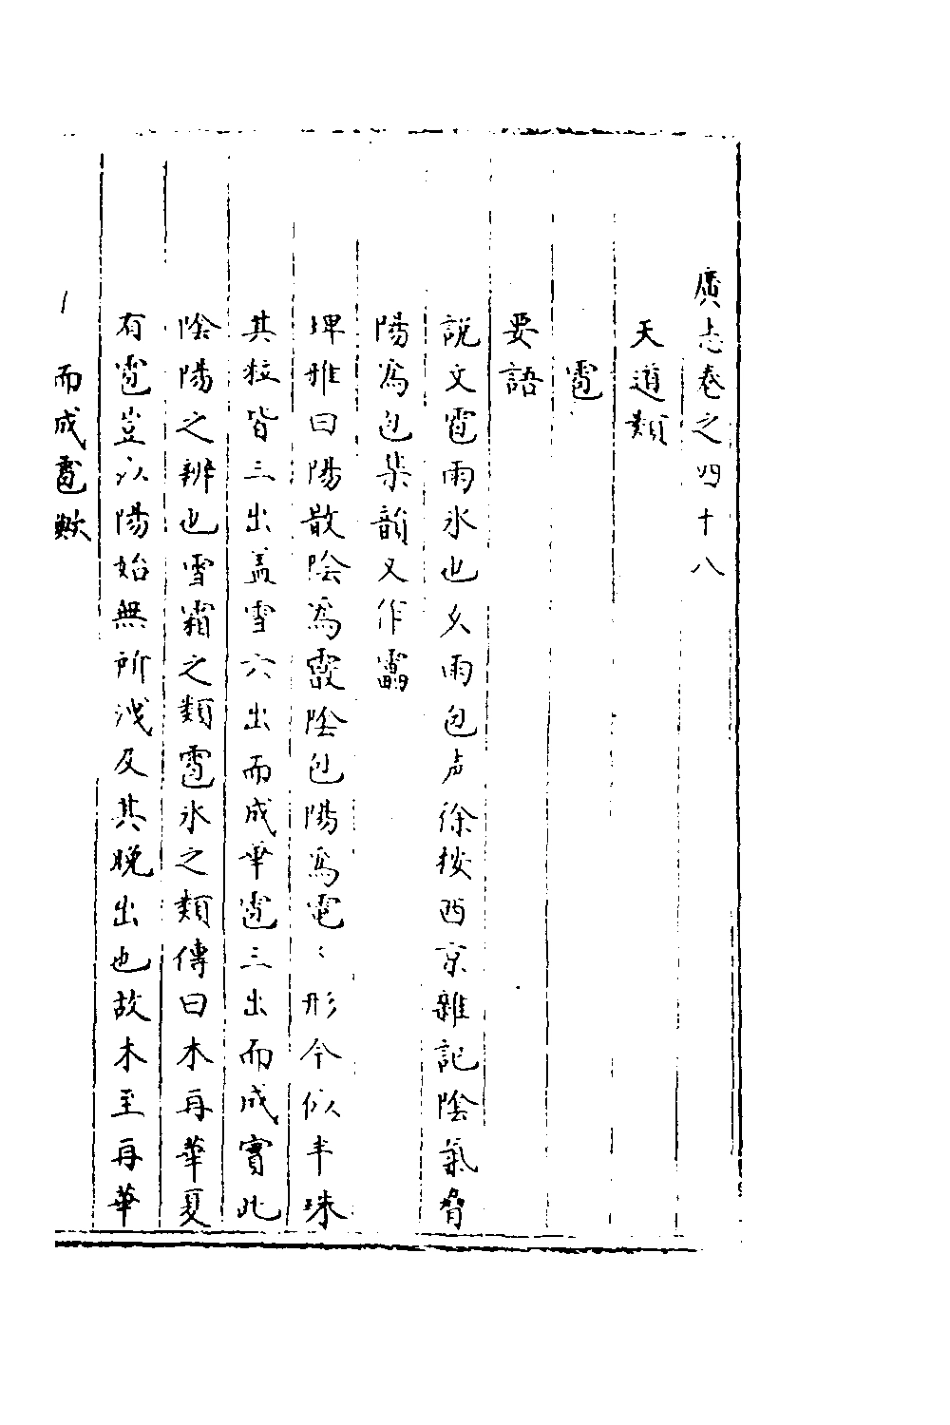 廣志卷之四十八
天道類
雹
要語
說文雹雨氷也从雨包声徐按西京雜記陰氣脅
陽爲包集韻又作靐
埤雅曰陽散陰爲霰陰包陽爲雹〻形今似半珠
其粒皆三出盖雪六出而成華雹三出而成實此
陰陽之辨也雪霜之類雹氷之類傳曰木再華夏
有雹豈以陽始無所洩及其晚出也故木至再華
而成雹歟